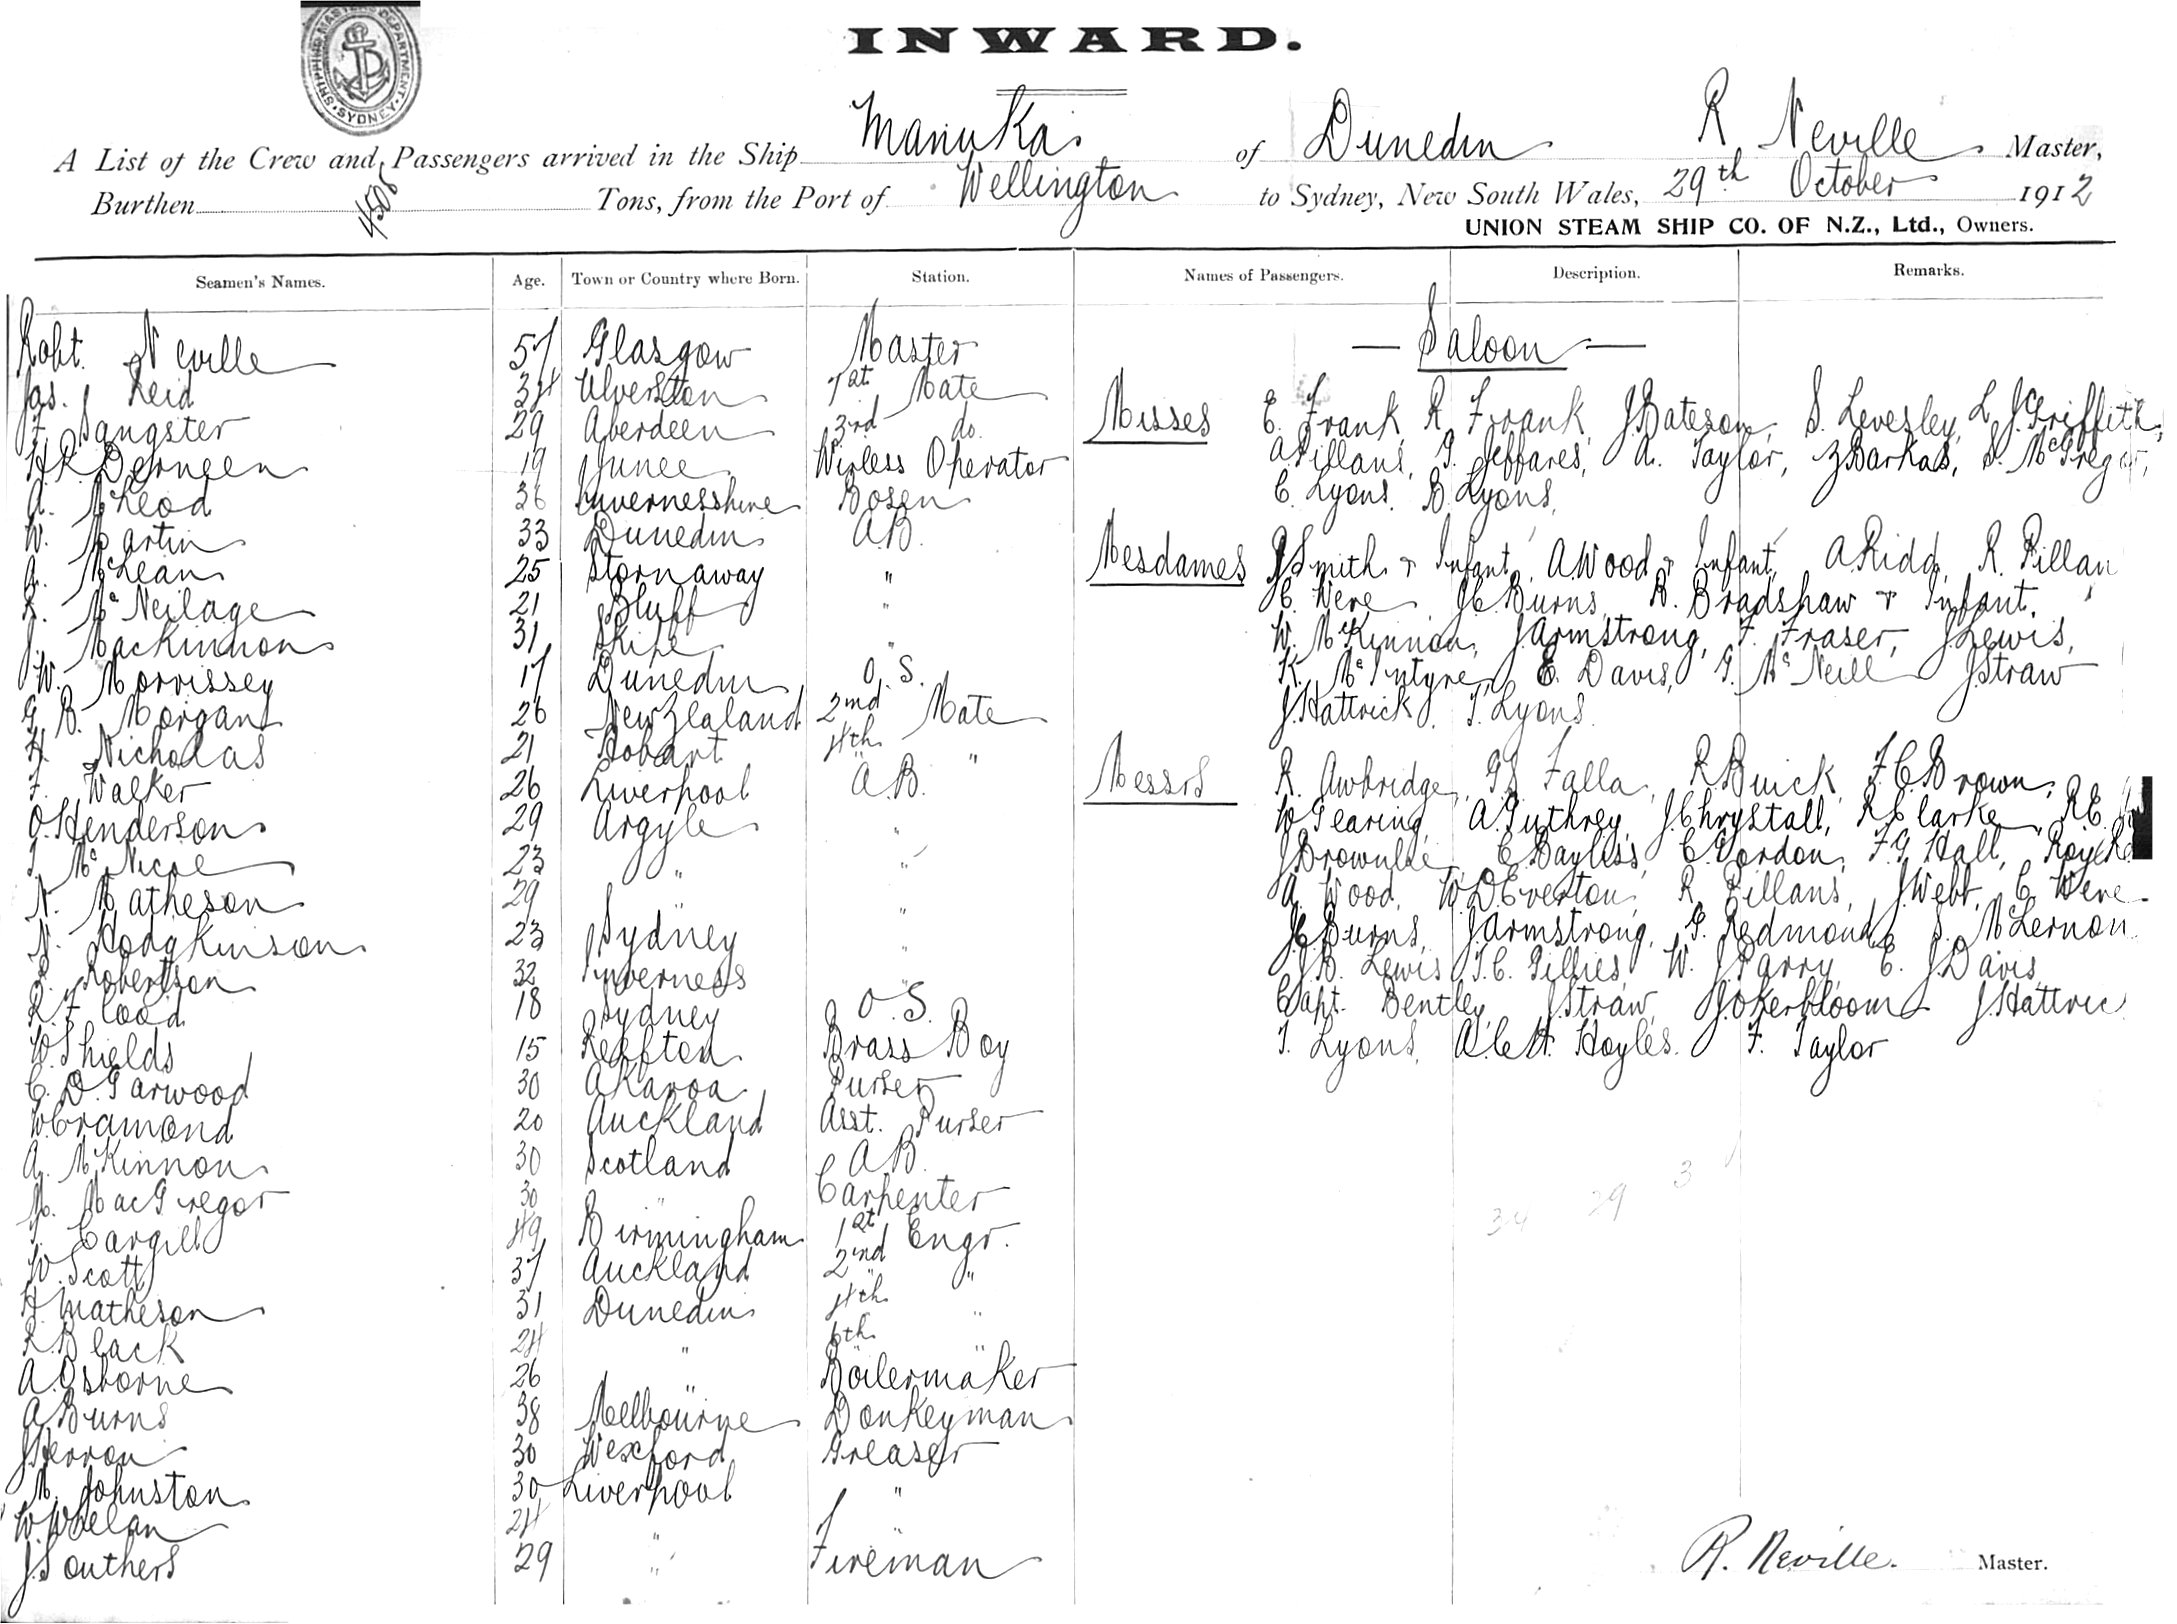 SHIPPING MASTERS DEPARTMENT · SYDNEY ·
INWARD.
A List of the Crew and Passengers arrived in the Ship Manuka of Dunedin R Neville Master,
Burthen 4505 Tons, from the Port of Wellington to Sydney, New South Wales, 29th October 1912
UNION STEAM SHIP CO. OF N.Z., Ltd., Owners.
Seamen's Names. Age. Town or Country where Born. Station. Names of Passengers. Description. Remarks.
Robt. Neville 57 Glasgow Master
Jas. Reid 34 Ulverston 1st Mate
F. Sangster 29 Aberdeen 3rd do.
H.R. 19 Junee Wireless Operator
A. McLeod 36 Invernesshire Bosen
W. Martin 33 Dunedin A.B.
A. McLean 25 Stornaway "
R. McNeilage 21 Bluff "
J. MacKinnon 31 Skye "
J.W. Morrissey 17 Dunedin O.S.
G. B. Morgan 26 New Zealand 2nd Mate
H. Nicholas 21 Hobart 4th "
F. Walker 26 Liverpool A.B.
O. Henderson 29 Argyle "
J. McNicol 23 " "
N. Matheson 29 " "
N. Hodgkinson 23 Sydney "
R. Robertson 32 Inverness "
R. Flood 18 Sydney O.S.
W. Shields 15 Reefton Brass Boy
C. D. Garwood 30 Akaroa Purser
W. Cramond 20 Auckland Asst. Purser
A. McKinnon 30 Scotland A.B.
M. MacGregor 30 " Carpenter
J. Cargill 49 Birmingham 1st Engr.
W. Scott 37 Auckland 2nd "
H. Matheson 31 Dunedin 4th "
R. Black 24 " 6th "
A. Osborne 26 " Boilermaker
A. Burns 38 Melbourne Donkeyman
J. Herron 30 Wexford Greaser
M. Johnston 30 Liverpool "
W. Whelan 24 " "
J. Southers 29 " Fireman
— Saloon —
Misses E. Frank, R. Frank, J. Bateson, S. Levesley, L. J. Griffith,
A. Pillans, G. Jeffares, A. Taylor, Z. Barkas, S. McGregor,
C. Lyons, B. Lyons,
Mesdames J. Smith & Infant, A. Wood & Infant, A. Ridd, R. Pillan
C. Were J.C. Burns, B. Bradshaw & Infant,
W. McKinnon, J. Armstrong, F. Fraser, J. Lewis,
K. McIntyre, E. Davis, G. McNeill J. Straw
J. Hattrick, T. Lyons
Messrs R. Awbridge, G.S. Falla, R. Buick, F.C. Brown,
W. Gearing, A. Guthrey, J. Chrystall, R. Clarke, R.C.
J. Brownlie, C. Bayliss, C. Gordon, F.G. Hall, Roy
A. Wood, W.D. Everton, R. Pillans, J. Webb, C. Were
J.C. Burns, J. Armstrong, G. Redmond, S. McLernon
J.B. Lewis T.C. Gillies, W. J. Parry, E. J. Davis,
Capt. Bentley, J. Straw, J. Okerbloom J. Hattric
T. Lyons, A.C.H. Hoyles. F. Taylor
34 29 3
R. Neville. Master.